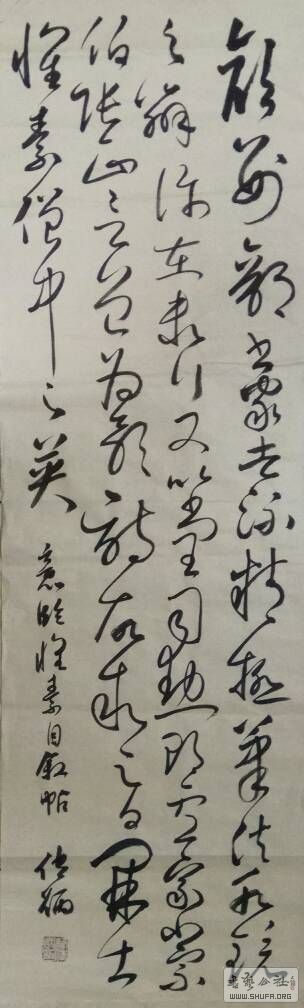 顏刑部書家者流精極筆法水鏡
之辨許在末行又以尚書司勳郎盧象小宗
伯張正言曾為歌詩故敘之曰開士
懷素僧中之英
意臨懷素自敘帖
書藝公社
WWW.SHUFA.ORG